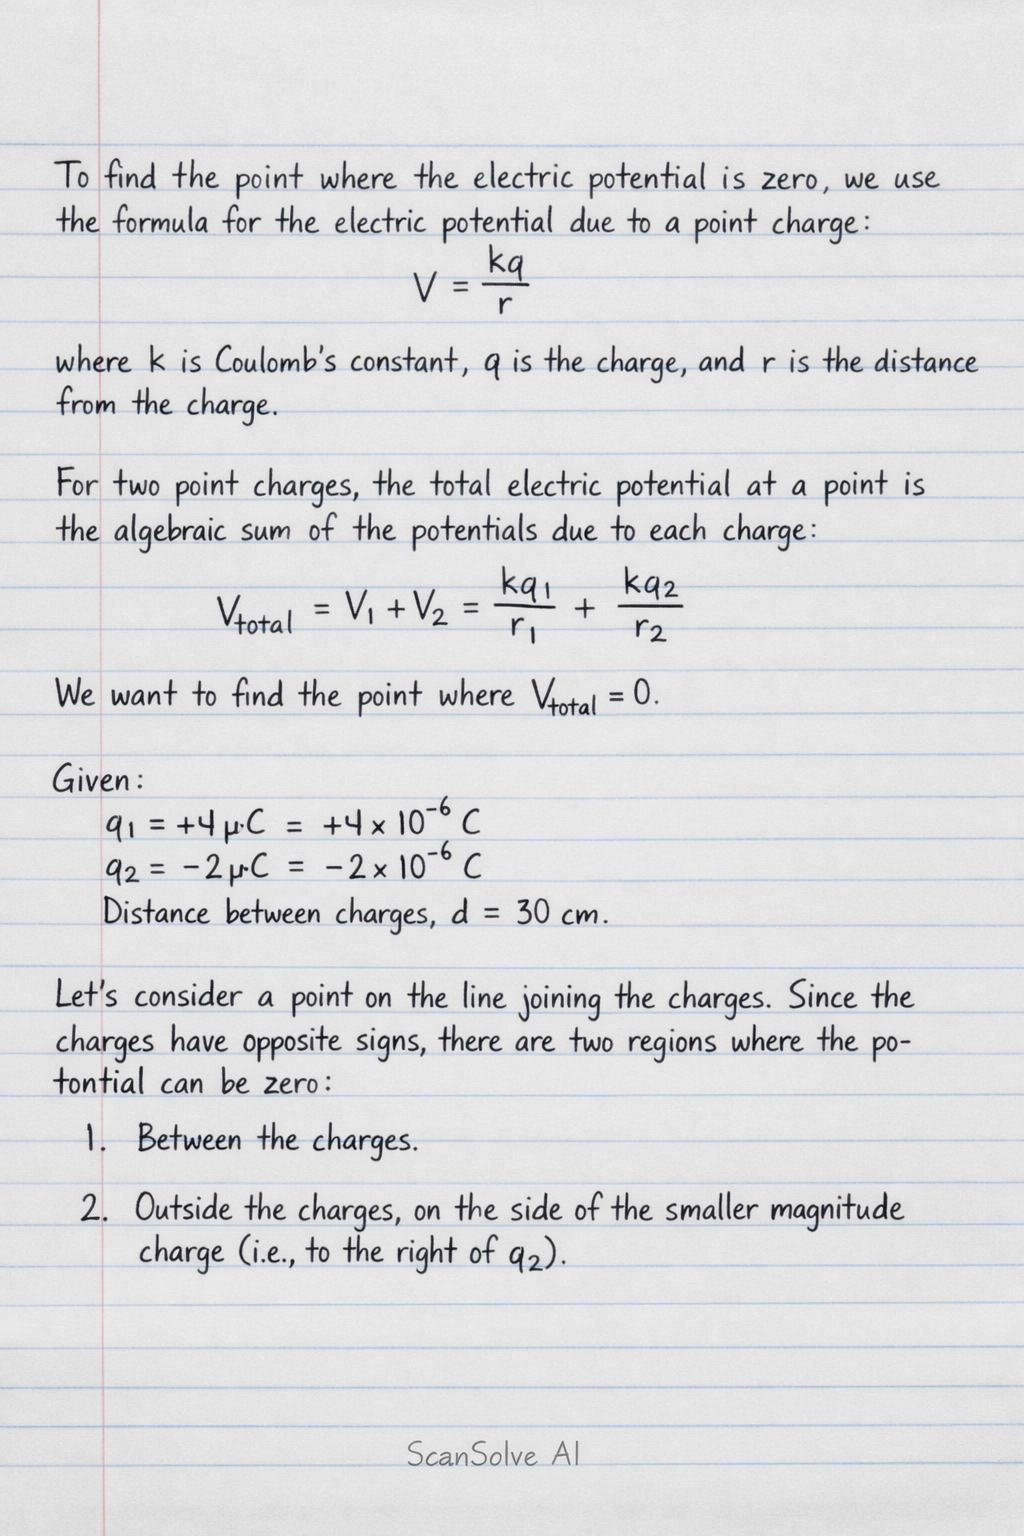 To find the point where the electric potential is zero, we use
the formula for the electric potential due to a point charge:
V = kq/r
where k is Coulomb's constant, q is the charge, and r is the distance
from the charge.
For two point charges, the total electric potential at a point is
the algebraic sum of the potentials due to each charge:
V_total = V₁ + V₂ = kq₁/r₁ + kq₂/r₂
We want to find the point where V_total = 0.
Given:
q₁ = +4 μC = +4 × 10⁻⁶ C
q₂ = −2 μC = −2 × 10⁻⁶ C
Distance between charges, d = 30 cm.
Let's consider a point on the line joining the charges. Since the
charges have opposite signs, there are two regions where the po-
tontial can be zero:
1. Between the charges.
2. Outside the charges, on the side of the smaller magnitude
charge (i.e., to the right of q₂).
ScanSolve AI